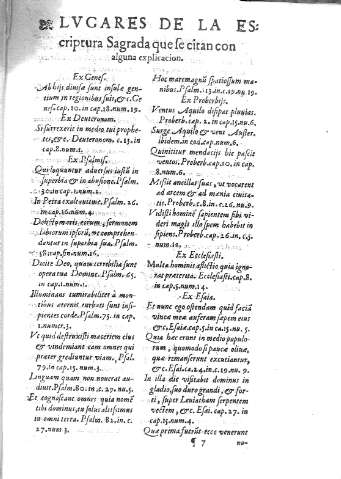 LVGARES DE LA ES-
criptura Sagrada que se citan con
alguna explicacion.
Ex Genes.
Ab his divisæ sunt insulæ gen-
tium in regionibus suis, &c. Ge-
nes. cap. 10. in cap. 18. num. 19.
Ex Deuteronom.
Si surrexerit in medio tui prophe-
tes, &c. Deuteronom. c. 13. in
cap. 8. num. 1.
Ex Psalmis.
Qui loquuntur adversus iustũ in
superbia & in abusione. Psalm.
30. in cap. 1. num. 2.
In Petra exaltavit me. Psalm. 26.
in cap. 16. num. 4.
labiorum ipsorũ, & comprehen-
dantur in superbia sua. Psalm.
num. 16.
Dicite Deo, quam terribilia sunt
opera tua Domine. Psalm. 65.
in cap. 1. num. 1.
Illuminans tu mirabiliter à mon-
tibus æternis turbati sunt insi-
pientes corde. Psalm. 75. in cap.
1. numer. 3.
Vt quid destruxisti maceriem eius
& vindemiant eam omnes qui
præter grediuntur viam, Psalm.
79. in cap. 15. num. 3.
Linguam quam non noverat au-
divit. Psalm. 80. in c. 27. nu. 5.
Et cognoscant omnes quia nomẽ
tibi dominus, tu solus altissimus
in omni terra. Psalm. 82. in c.
27. num. 3.
Hoc mare magnũ spatiosum ma-
nibus. Psalm. 103. in c. 19. nu. 19.
Ex Proberbijs.
Ventus Aquilo disipat pluvias.
Proberb. cap. 2. in cap. 15. nu. 6.
Surge Aquilo & veni Auster.
ibidem. in eod. cap. num. 6.
Qui nititur mendacijs hic pascit
ventos. Proberb. cap. 10. in cap.
8. num. 6.
Misit ancillas suas, ut vocarent
ad arcem & ad mænia civita-
tis. Proberb. c. 8. in c. 26. nu. 9.
Vidisti hominẽ sapientem sibi vi-
deri magis illo spem habebit in
sipiens. Proberb. cap. 26. in c. 3.
num. 12.
Ex Ecclesiasti.
Multa hominis afflictio quia igno-
rat præterita. Ecclesiasti. cap. 8.
in cap. 5. num. 14.
Ex Esaia.
Et nunc ego ostendam quid faciã
vineæ meæ auferam sepem eius
& c. Esaiæ. cap. 5. in ca. 15. nu. 5.
Quia hæc erunt in medio populo-
rum, quomodo si paucæ olivæ,
quæ remanserunt excutiantur,
& c. Esaiæ. ca. 24. in c. 19. nu. 9.
In illa die visitabit dominus in
gladio, suo duro grandi, & for-
ti, super Leviathan serpentem
vectem, & c. Esai. cap. 27. in
cap. 15. num. 4.
Quæ prima fuerũt ecce venerunt
¶ 7
no-